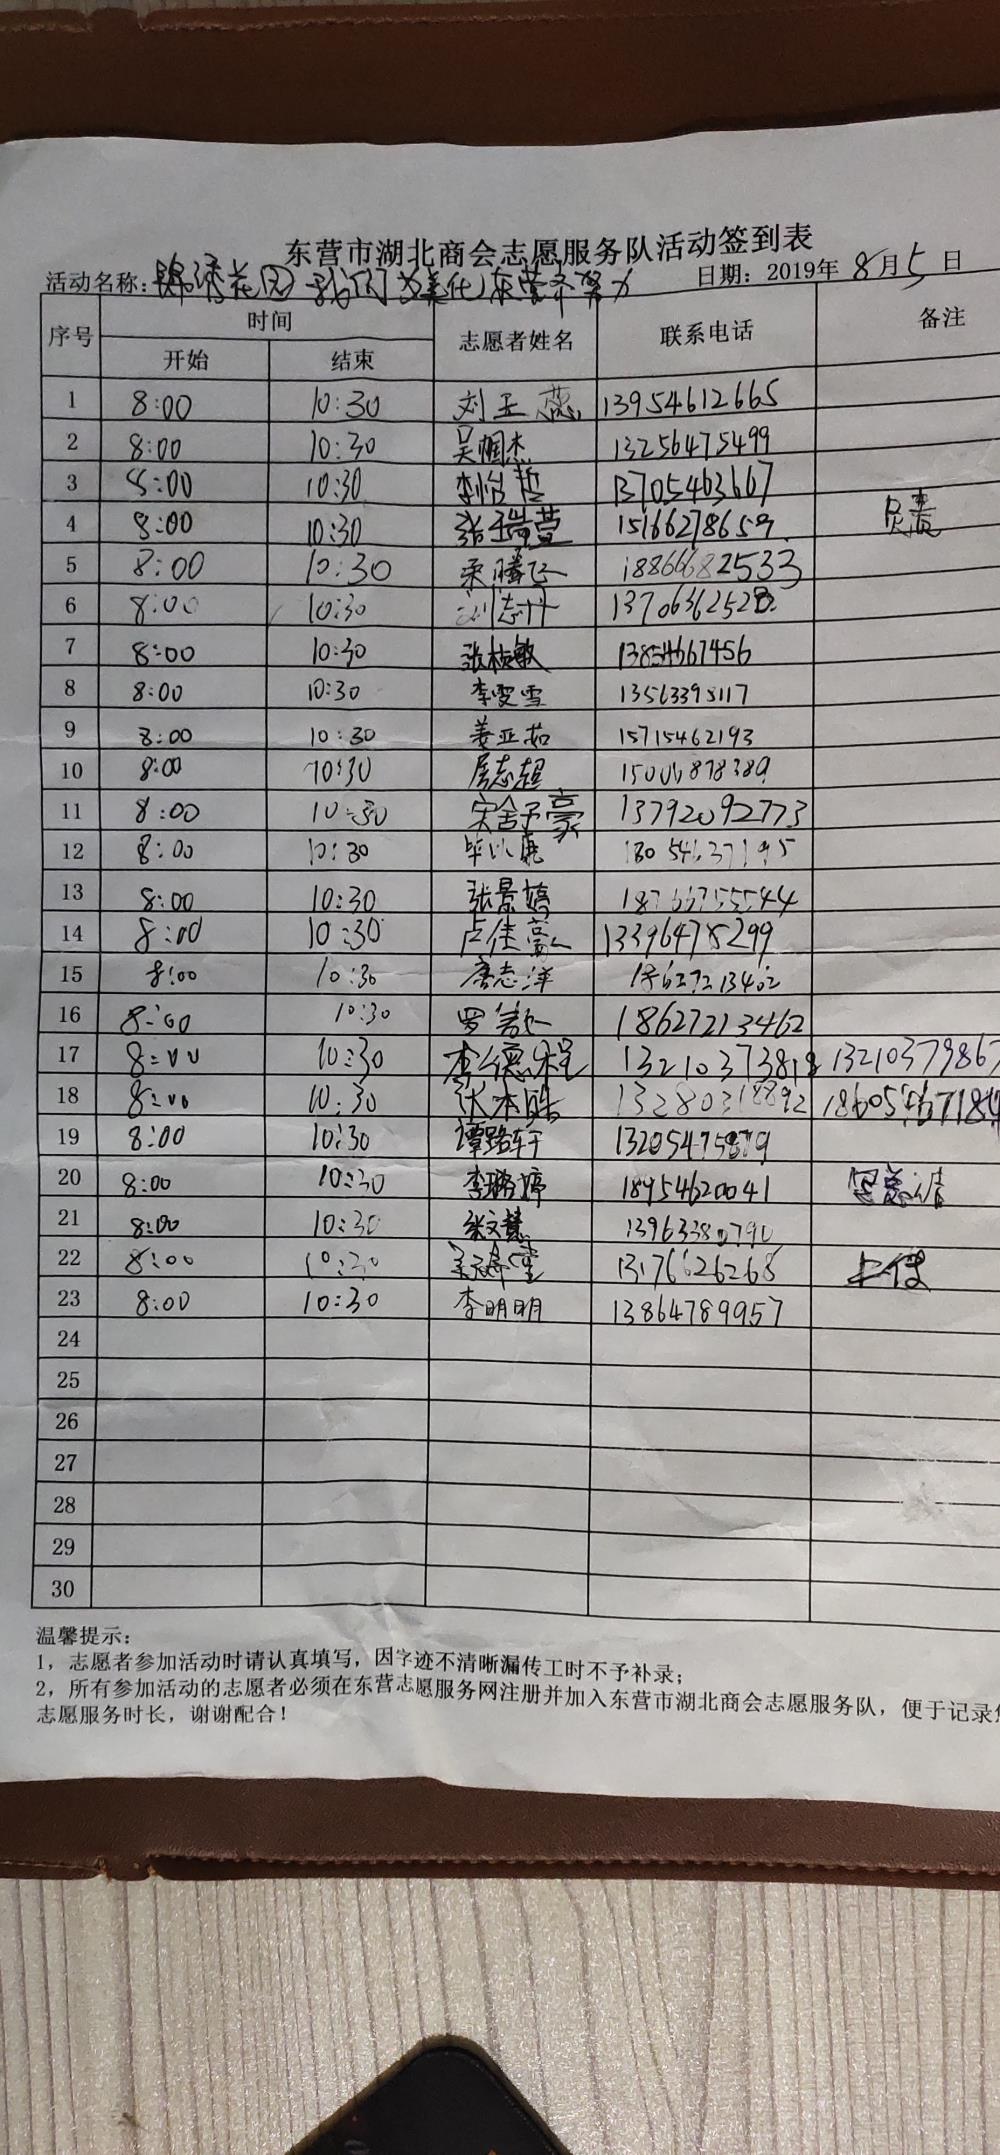 东营市湖北商会志愿服务队活动签到表
活动名称：锦绣花园 我们为美化东营齐努力 日期：2019年8月5日
序号 时间 志愿者姓名 联系电话 备注
开始 结束
1 8:00 10:30 刘玉蕊 13954612665
2 8:00 10:30 吴帼杰 13256475499
3 8:00 10:30 李怡哲 13705463667
4 8:00 10:30 张瑞萱 15166278659 负责
5 8:00 10:30 荣腾飞 18866682533
6 8:00 10:30 刘志丹 13706362528
7 8:00 10:30 张桢敏 13854667456
8 8:00 10:30 李雯雪 13563395117
9 8:00 10:30 姜亚茹 15715462193
10 8:00 10:30 房志超 15006878389
11 8:00 10:30 宋舍予豪 13792092773
12 8:00 10:30 毕以晓 18054637195
13 8:00 10:30 张景婷 18766755544
14 8:00 10:30 卢佳豪 13396478299
15 8:00 10:30 唐志洋 18627213462
16 8:00 10:30 罗 18627213462
17 8:00 10:30 李德程 13210373818 13210379867
18 8:00 10:30 张本皓 13280318892 18605467184
19 8:00 10:30 谭路轩 13205475879
20 8:00 10:30 李璐婷 18954620041
21 8:00 10:30 张文慧 13963380790
22 8:00 10:30 13176626268 上传
23 8:00 10:30 李明明 13864789957
24
25
26
27
28
29
30
温馨提示：
1，志愿者参加活动时请认真填写，因字迹不清晰漏传工时不予补录；
2，所有参加活动的志愿者必须在东营志愿服务网注册并加入东营市湖北商会志愿服务队，便于记录
志愿服务时长，谢谢配合！